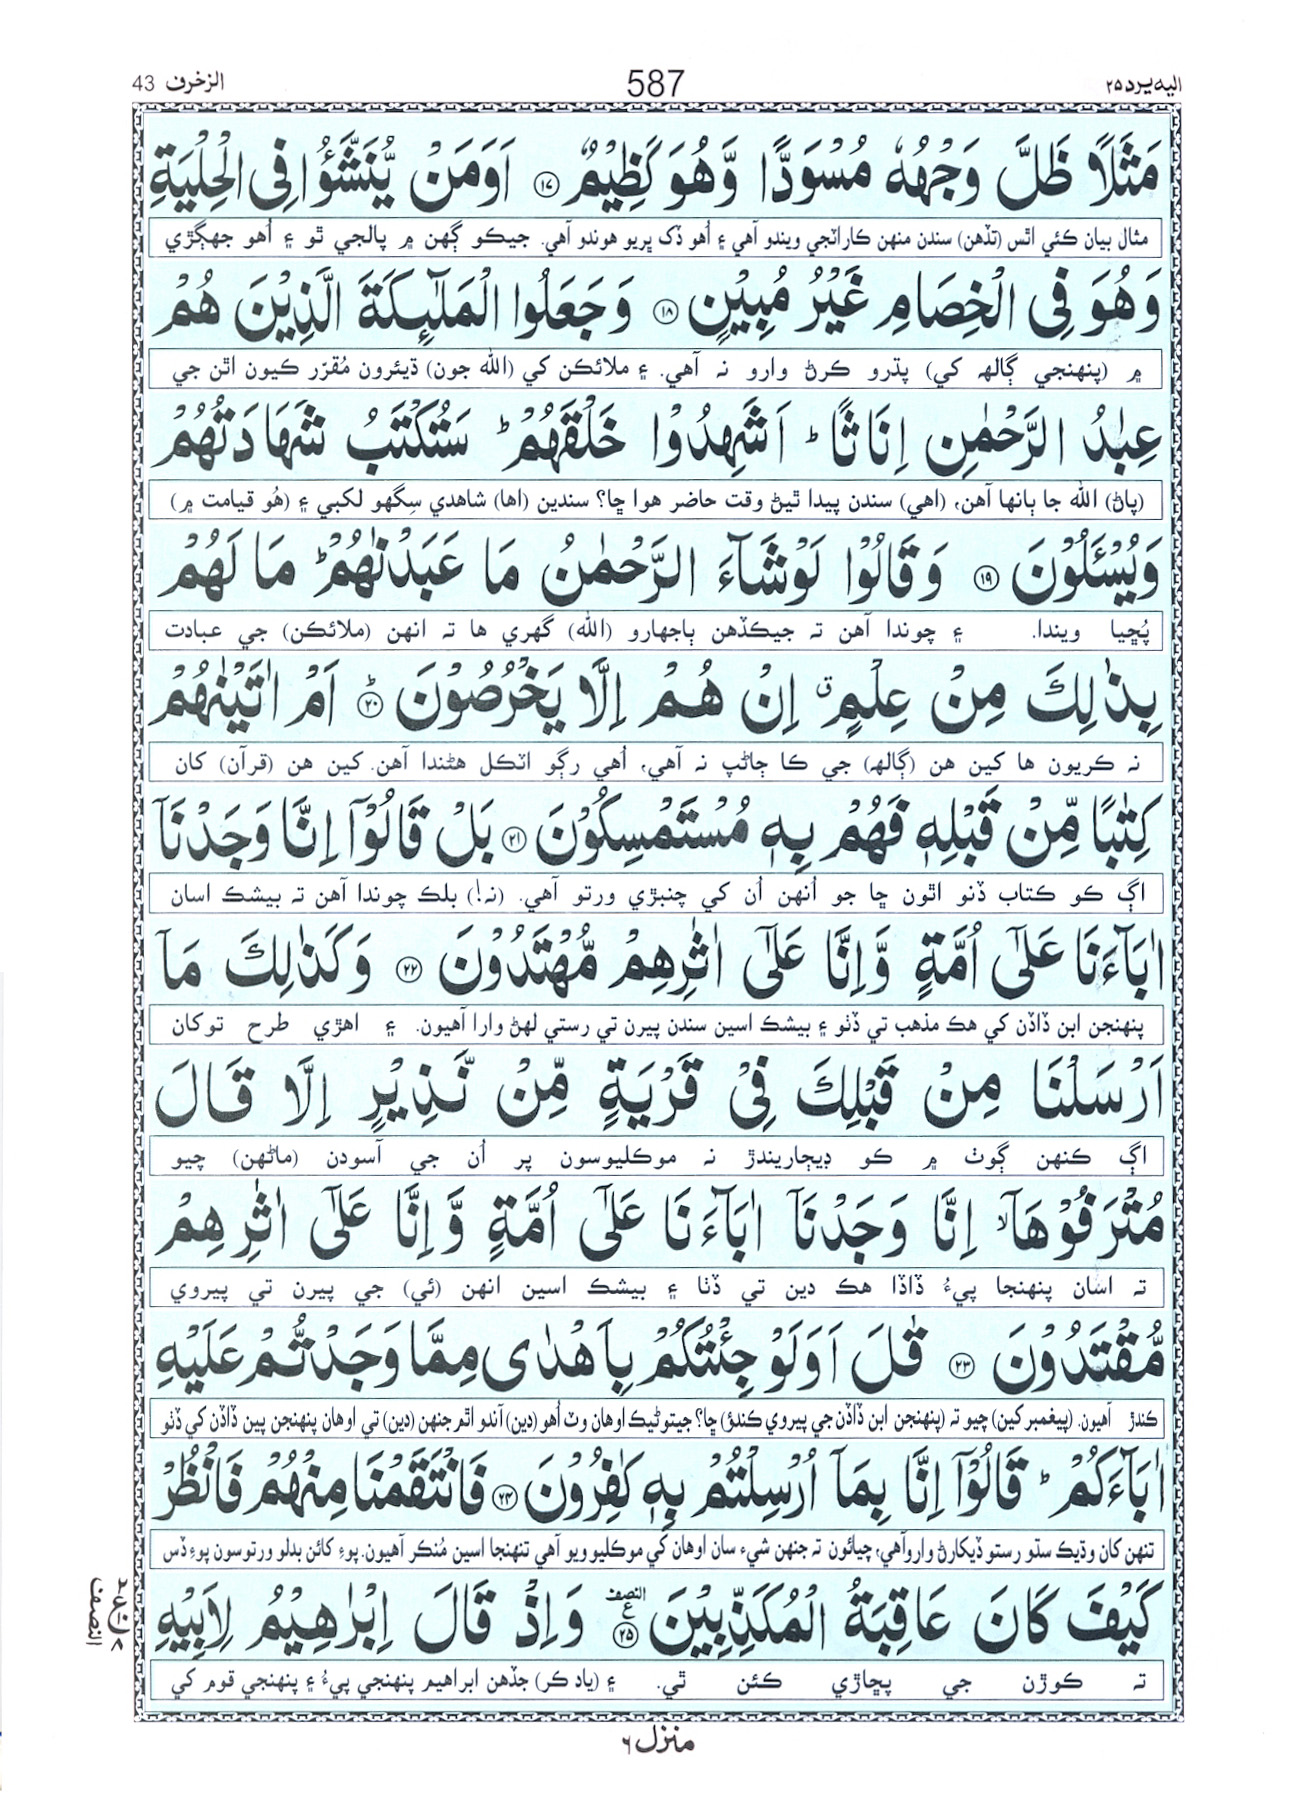 اليه يرد ٢٥
587
الزخرف 43
مَثَلًا ظَلَّ وَجْهُهٗ مُسْوَدًّا وَّهُوَ كَظِيْمٌ ١٧ اَوَمَنْ يُّنَشَّؤُا فِى الْحِلْيَةِ
مثال بيان ڪئي اٿس (تڏهن) سندن منهن ڪاراٽجي ويندو آهي ۽ اُهو ڏک ڀريو هوندو آهي. جيڪو ڳهن ۾ پالجي ٿو ۽ اُهو جهڳڙي
وَهُوَ فِى الْخِصَامِ غَيْرُ مُبِيْنٍ ١٨ وَجَعَلُوا الْمَلٰٓئِكَةَ الَّذِيْنَ هُمْ
۾ (پنهنجي ڳالهه کي) پڌرو ڪرڻ وارو نہ آهي. ۽ ملائڪن کي (الله جون) ڌيئرون مُقرّر ڪيون اٿن جي
عِبٰدُ الرَّحْمٰنِ اِنَاثًا ؕ اَشَهِدُوْا خَلْقَهُمْ ؕ سَتُكْتَبُ شَهَادَتُهُمْ
(پاڻ) الله جا ٻانها آهن، (اهي) سندن پيدا ٿيڻ وقت حاضر هوا ڇا؟ سندين (اها) شاهدي سِگهو لکبي ۽ (هُو قيامت ۾)
وَيُسْـَٔلُوْنَ ١٩ وَقَالُوْا لَوْ شَآءَ الرَّحْمٰنُ مَا عَبَدْنٰهُمْ ؕ مَا لَهُمْ
پُڇيا ويندا. ۽ چوندا آهن تہ جيڪڏهن ٻاجهارو (الله) گهري ها تہ انهن (ملائڪن) جي عبادت
بِذٰلِكَ مِنْ عِلْمٍ ۗ اِنْ هُمْ اِلَّا يَخْرُصُوْنَ ؕ ٢٠ اَمْ اٰتَيْنٰهُمْ
نہ ڪريون ها کين هن (ڳالهه) جي ڪا ڄاڻپ نہ آهي، اُهي رڳو اٽڪل هڻندا آهن. کين هن (قرآن) کان
كِتٰبًا مِّنْ قَبْلِهٖ فَهُمْ بِهٖ مُسْتَمْسِكُوْنَ ٢١ بَلْ قَالُوْٓا اِنَّا وَجَدْنَآ
اڳ ڪو ڪتاب ڏنو اٿون ڇا جو اُنهن اُن کي چنبڙي ورتو آهي. (نہ!) بلڪ چوندا آهن تہ بيشڪ اسان
اٰبَآءَنَا عَلٰٓى اُمَّةٍ وَّاِنَّا عَلٰٓى اٰثٰرِهِمْ مُّهْتَدُوْنَ ٢٢ وَكَذٰلِكَ مَآ
پنهنجن ابن ڏاڏن کي هڪ مذهب تي ڏٺو ۽ بيشڪ اسين سندن پيرن تي رستي لهڻ وارا آهيون. ۽ اهڙي طرح توکان
اَرْسَلْنَا مِنْ قَبْلِكَ فِىْ قَرْيَةٍ مِّنْ نَّذِيْرٍ اِلَّا قَالَ
اڳ ڪنهن ڳوٺ ۾ ڪو ڊيڄاريندڙ نہ موڪليوسون پر اُن جي آسودن (ماڻهن) چيو
مُتْرَفُوْهَآ ۙ اِنَّا وَجَدْنَآ اٰبَآءَنَا عَلٰٓى اُمَّةٍ وَّاِنَّا عَلٰٓى اٰثٰرِهِمْ
تہ اسان پنهنجا پيءُ ڏاڏا هڪ دين تي ڏٺا ۽ بيشڪ اسين انهن (ئي) جي پيرن تي پيروي
مُّقْتَدُوْنَ ٢٣ قٰلَ اَوَلَوْ جِئْتُكُمْ بِاَهْدٰى مِمَّا وَجَدْتُّمْ عَلَيْهِ
ڪندڙ آهيون. (پيغمبر کين) چيو تہ (پنهنجن ابن ڏاڏن جي پيروي ڪندؤ) ڇا؟ جيتوڻيڪ اوهان وٽ اُهو (دين) آندو اٿم جنهن (دين) تي اوهان پنهنجن پين ڏاڏن کي ڏٺو
اٰبَآءَكُمْ ؕ قَالُوْٓا اِنَّا بِمَآ اُرْسِلْتُمْ بِهٖ كٰفِرُوْنَ ٢٤ فَانْتَقَمْنَا مِنْهُمْ فَانْظُرْ
تنهن کان وڌيڪ سڌو رستو ڏيکارڻ وارو آهي، چيائون تہ جنهن شيءِ سان اوهان کي موڪليو ويو آهي تنهنجا اسين مُنڪر آهيون. پوءِ کائن بدلو ورتوسون پوءِ ڏس
كَيْفَ كَانَ عَاقِبَةُ الْمُكَذِّبِيْنَ ٢٥ النصف ع وَاِذْ قَالَ اِبْرٰهِيْمُ لِاَبِيْهِ
تہ ڪوڙن جي پڇاڙي ڪئن ٿي. ۽ (ياد ڪر) جڏهن ابراهيم پنهنجي پيءُ ۽ پنهنجي قوم کي
النصف
منزل ٦